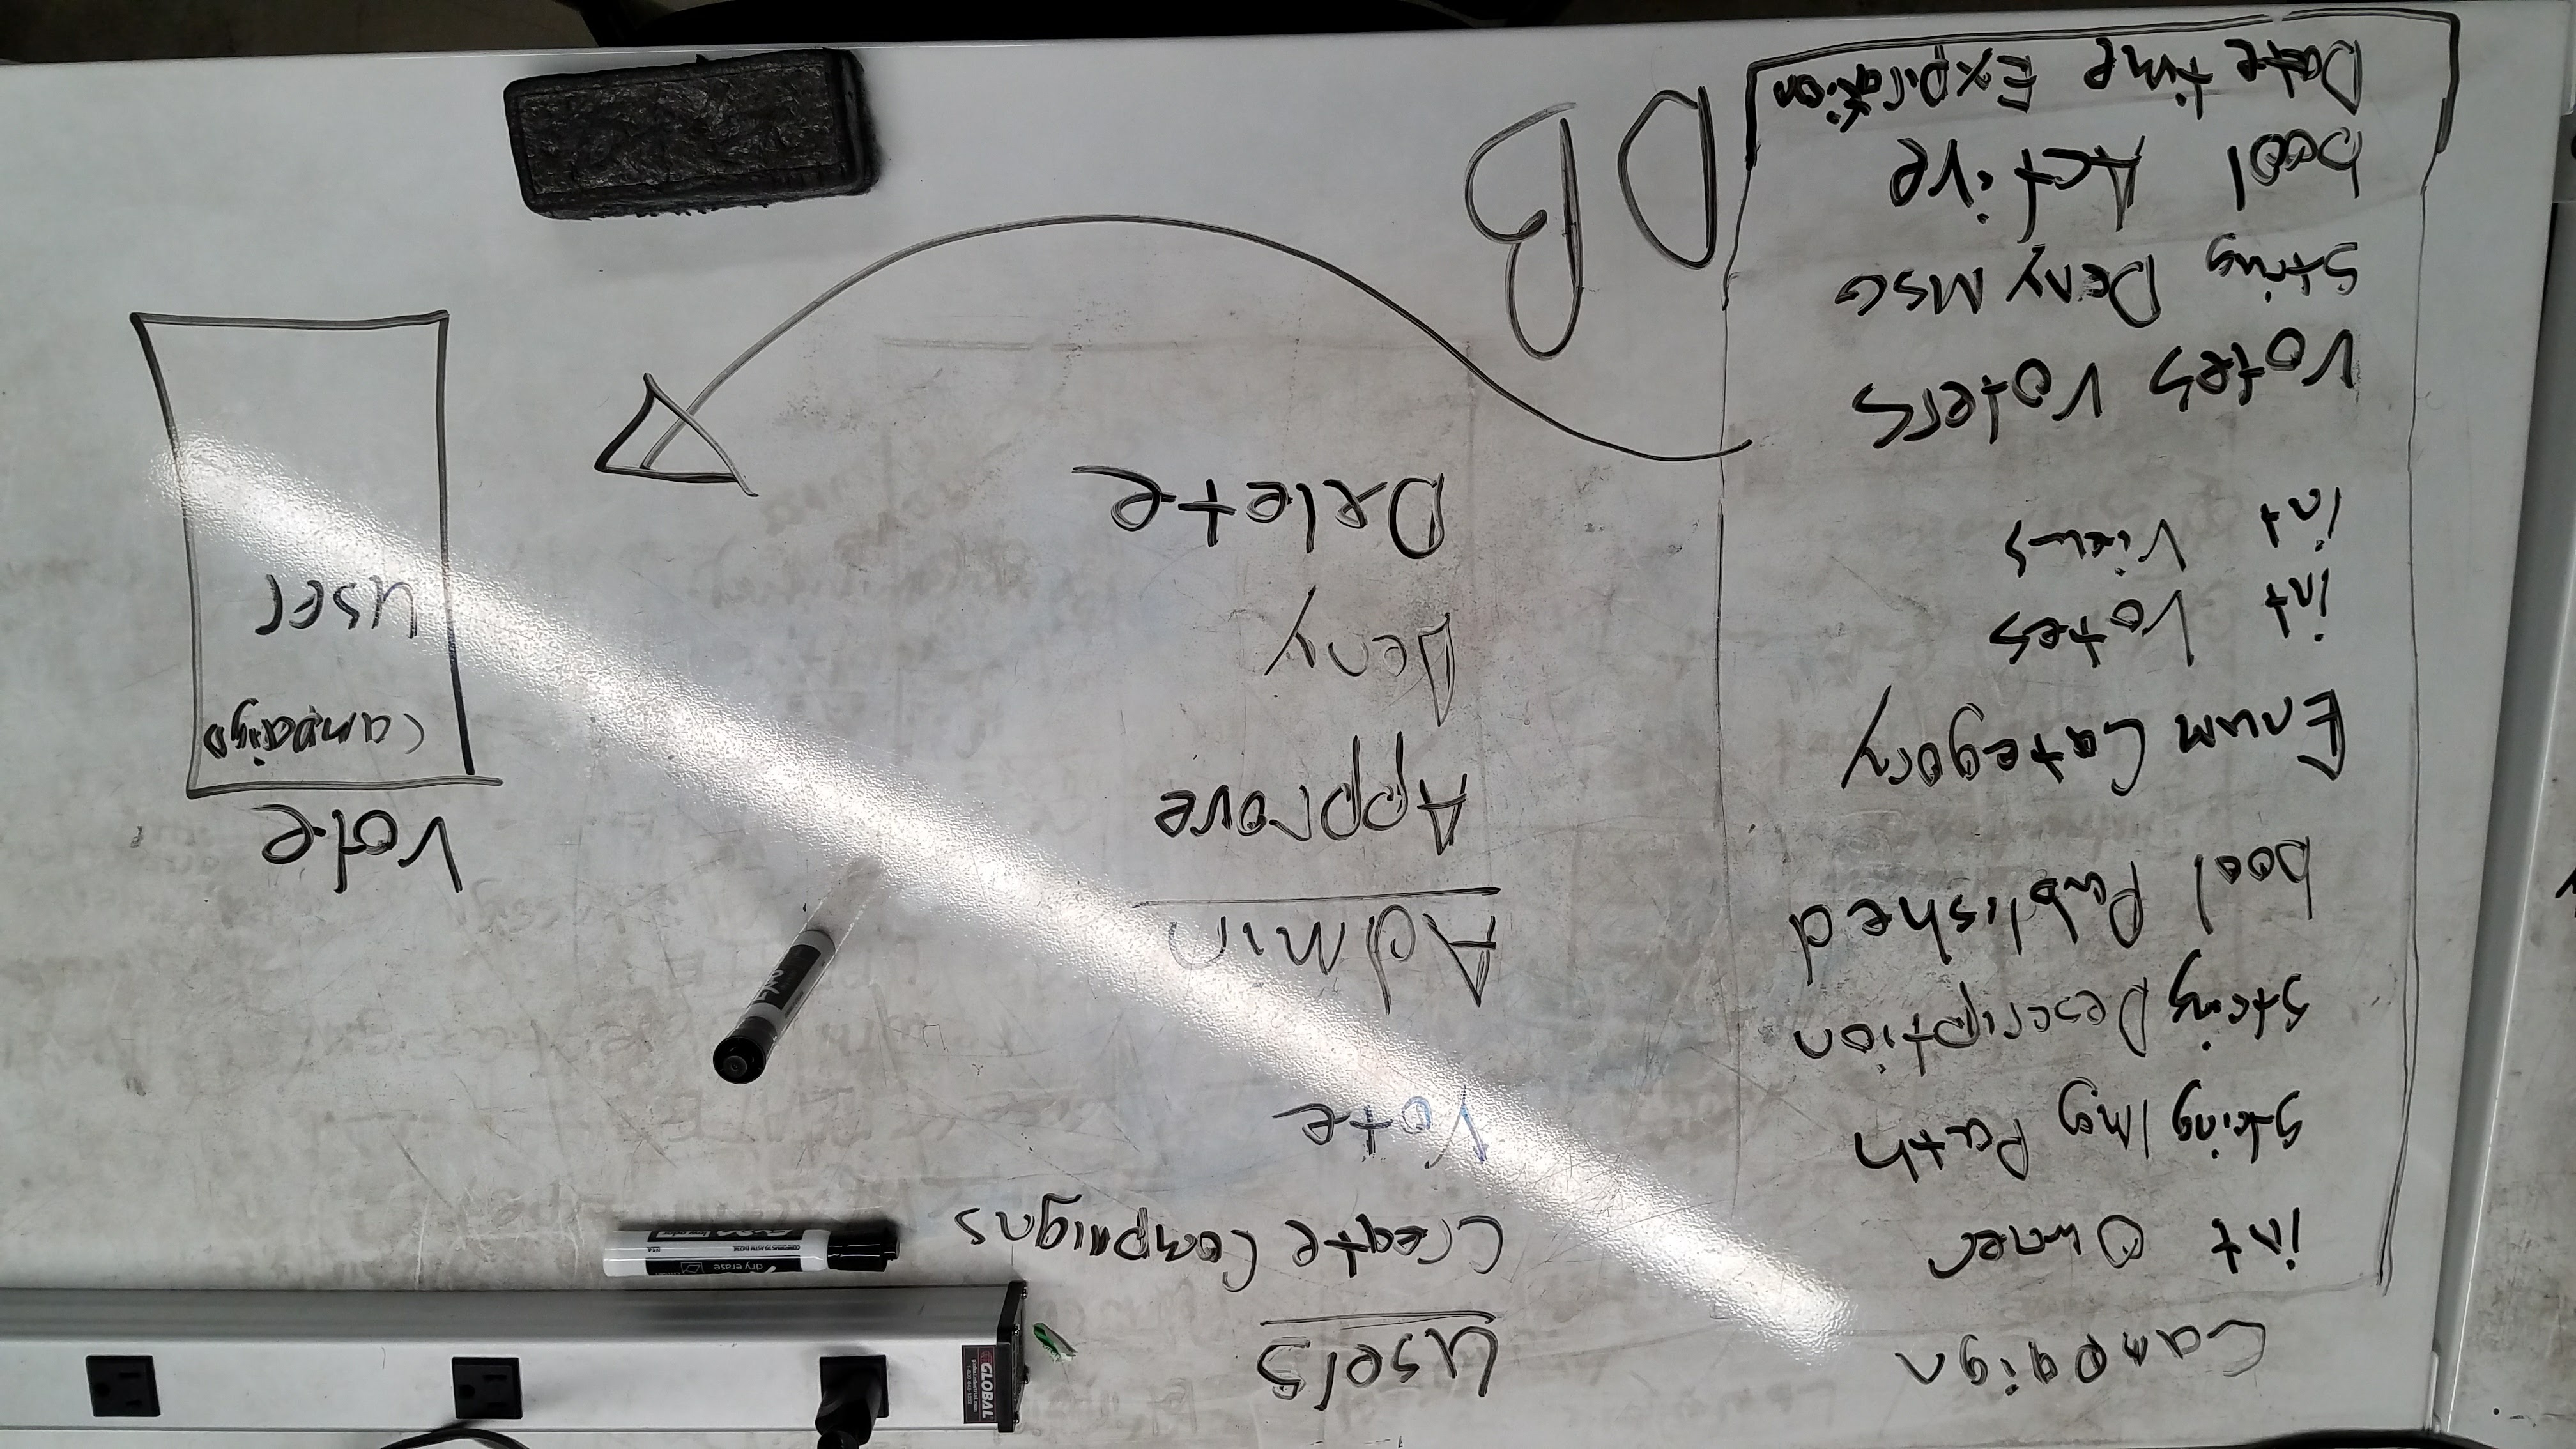 Campaign
int Owner
string Img Path
string Description
bool Published
Enum Category
int Votes
int Views
Votes Voters
string Deny MSG
bool Active
Date time Expiration
DB
Users
Create Campaigns
Vote
Admin
Approve
Deny
Delete
Vote
Campaign
User
GLOBAL
globalindustrial.com
dry erase